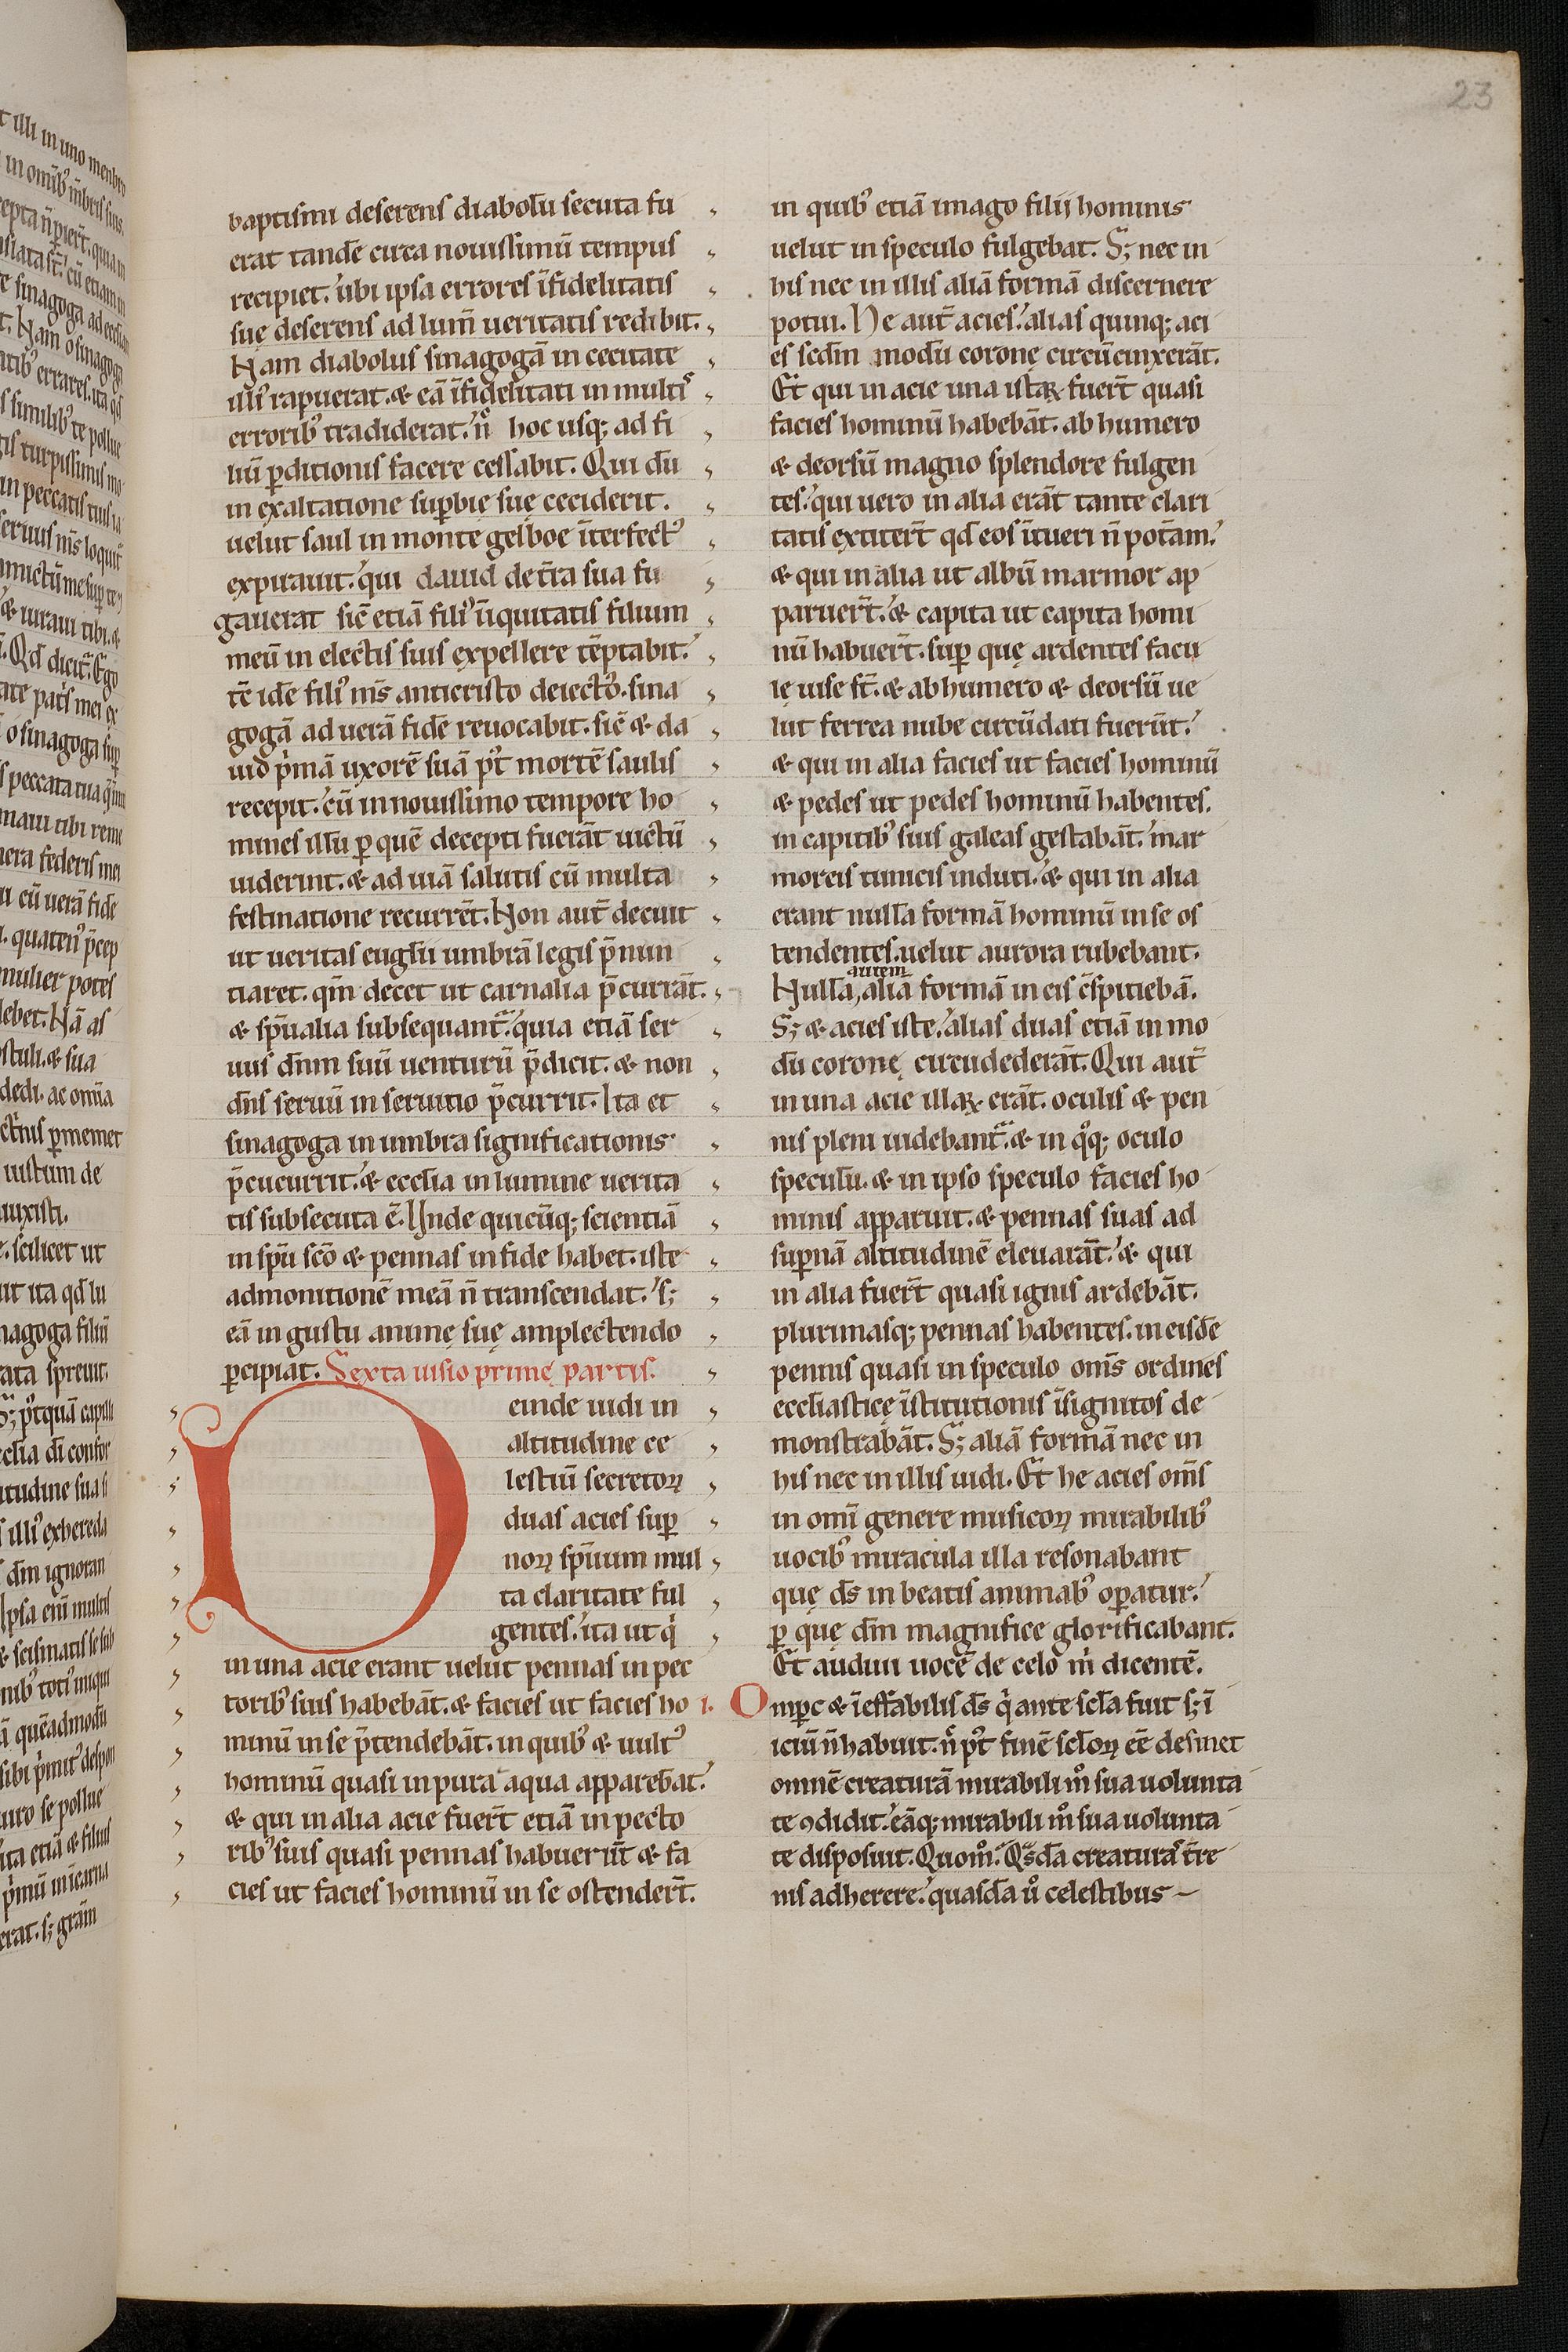 23
baptismi deserens diabolū secuta fu
erat tandē circa nouissimū tempus
recipiet. ubi ipsa errores īfidelitatis
suę deserens ad lum̄ ueritatis redibit.
Nam diabolus sinagogā in cecitate
rapuerat. & eā īfidelitati in multis
erroribꝰ tradiderat. n̄ hoc usq; ad fi
liū ꝑditionis facere cessabit. Qui dū
in exaltatione suꝑbię suę ceciderit.
uelut saul in monte gelboe īterfectꝰ
expirauit. qui dauid de t̄ra sua fu
gauerat sic̄ etiā filiꝰ īiquitatis filium
meū in electis suis expellere tēptabit.
tē idē filiꝰ m̄s anticristo deiecto. sina
gogā ad uerā fidē reuocabit. sic̄ & da
uid p̍mā uxorē suā p̄t mortē saulis
recepit. cū in nouissimo tempore ho
mines illū ꝑ quē decepti fuerāt uictū
uiderint. & ad uiā salutis cū multa
festinatione recurrēt. Non aut̄ decuit
ut ueritas euglii umbrā legis p̄nun
tiaret. qm̄ decet ut carnalia p̄currāt.
& sp̄ualia subsequant᷑. quia etiā ser
uus dn̄m suū uenturū p̄dicit. & non
dn̄s seruū in seruitio p̄currit. Ita et
sinagoga in umbra significationis
p̄cucurrit. & ecclia in lumine uerita
tis subsecuta ē. Unde quicūq; scientiā
in sp̄u sc̄o & pennas in fide habet. iste
admonitionē meā n̄ transcendat. s;
eā in gustu animę suę amplectendo
ꝑcipiat. Sexta uisio prime partis.
Deinde uidi in
altitudine ce
lestiū secretoꝝ
duas acies suꝑ
noꝝ sp̄uum mul
ta claritate ful
gentes. ita ut q̍
in una acie erant uelut pennas in pec
toribꝰ suis habebāt. & facies ut facies ho
minū in se p̄tendebāt. in quibꝰ & uultꝰ
hominū quasi in pura aqua apparebat.
& qui in alia acie fuert̄ etiā in pecto
ribꝰ suis quasi pennas habuerūt & fa
cies ut facies hominū in se ostendert̄.
in quibꝰ etiā imago filij hominis
uelut in speculo fulgebat. S; nec in
his nec in illis aliā formā discernere
potui. He aut̄ acies. alias quinq; aci
es scdm̄ modū coronę circūcinxerāt.
Et qui in acie una istaꝝ fuert̄ quasi
facies hominū habebāt. ab humero
& deorsū magno splendore fulgen
tes. qui uero in alia erāt tante clari
tatis extitert̄ qd̄ eos ītueri n̄ potam̄.
& qui in alia ut albū marmor ap
paruert̄. & capita ut capita homi
nū habuert̄. suꝑ quę ardentes facu
lę uise st̄. & ab humero & deorsū ue
lut ferrea nube circūdati fuerūt.
& qui in alia facies ut facies hominū
& pedes ut pedes hominū habentes.
in capitibꝰ suis galeas gestabāt. mar
moreis tunicis induti. & qui in alia
erant nullā formā hominū in se os
tendentes. uelut aurora rubebant.
autem
Nullā, aliā formā in eis c̄spitiebā.
S; & acies iste. alias duas etiā in mo
dū coronę circudederāt. Qui aut̄
in una acie illaꝝ erāt. oculis & pen
nis pleni uidebant᷑. & in qͦq; oculo
speculū. & in ipso speculo facies ho
minis apparuit. & pennas suas ad
suꝑnā altitudinē eleuarāt. & qui
in alia fuert̄ quasi ignis ardebāt.
plurimasq; pennas habentes. in eisdē
pennis quasi in speculo om̄s ordines
eccliasticę īstitutionis īsignitos de
monstrabāt. S; aliā formā nec in
his nec in illis uidi. Et he acies om̄s
in omī genere musicoꝝ mirabilibꝰ
uocibꝰ miracula illa resonabant
quę ds̄ in beatis animabꝰ oꝑatur.
ꝑ quę dm̄ magnifice glorificabant.
Et audiui uocē de celo m̍ dicentē.
i. Omꝑc & īeffabilis ds̄ q̍ ante scl̄a fuit s; ī
iciū n̄ habuit. n̄ p̄t finē scl̄oꝝ eē desinet
omnē creaturā mirabili mͦ sua uolunta
te ꝯdidit. eāq; mirabili mͦ sua uolunta
te disposuit. Quomͦ. Qᵃsdā creaturas t̄re
nis adherere. quasdā uͦ celestibus